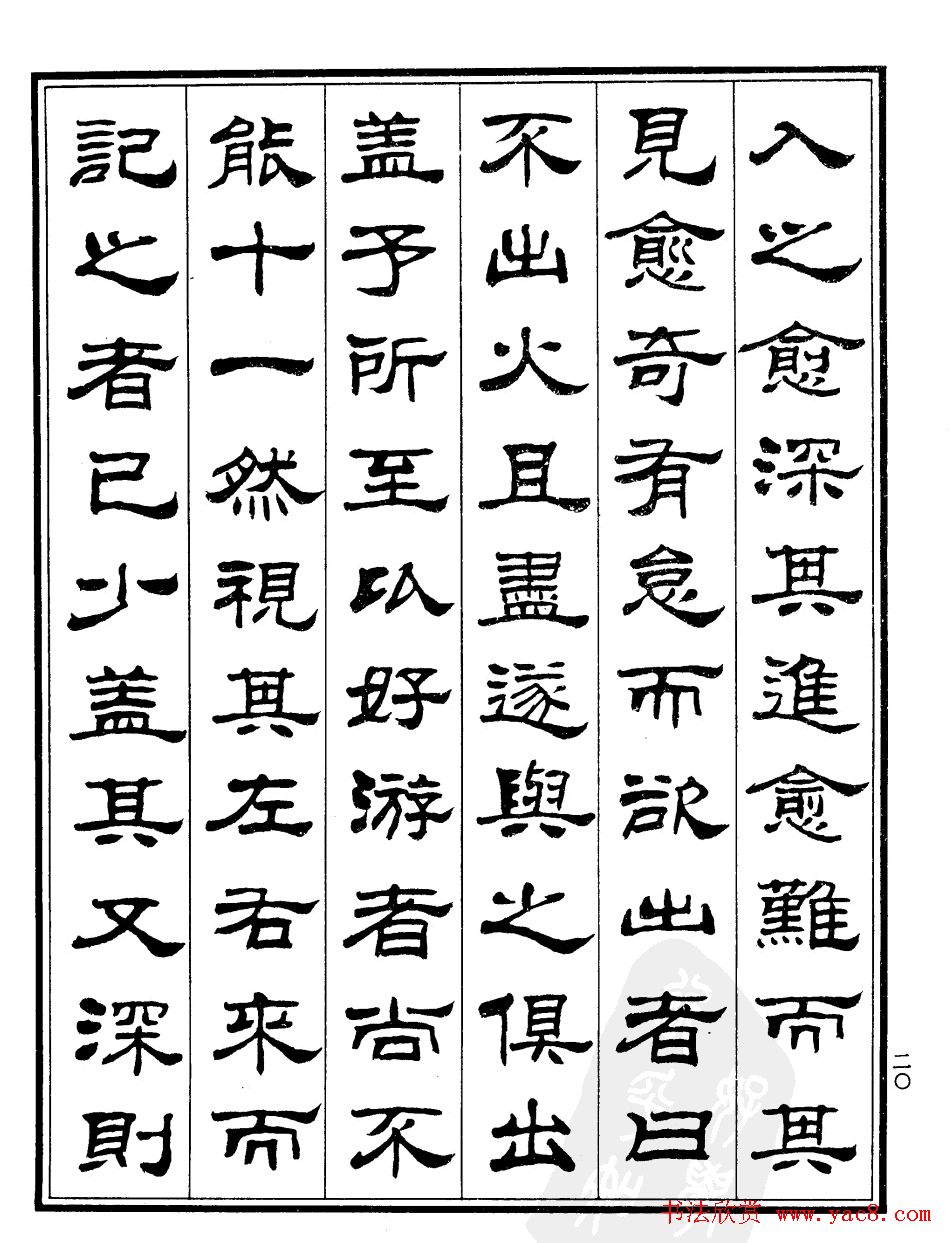 入之愈深其進愈難而其
見愈奇有怠而欲出者曰
不出火且盡遂與之俱出
盖予所至以好游者尚不
能十一然視其左右來而
記之者已少盖其又深則
二〇
书法欣赏 www.yac8.com